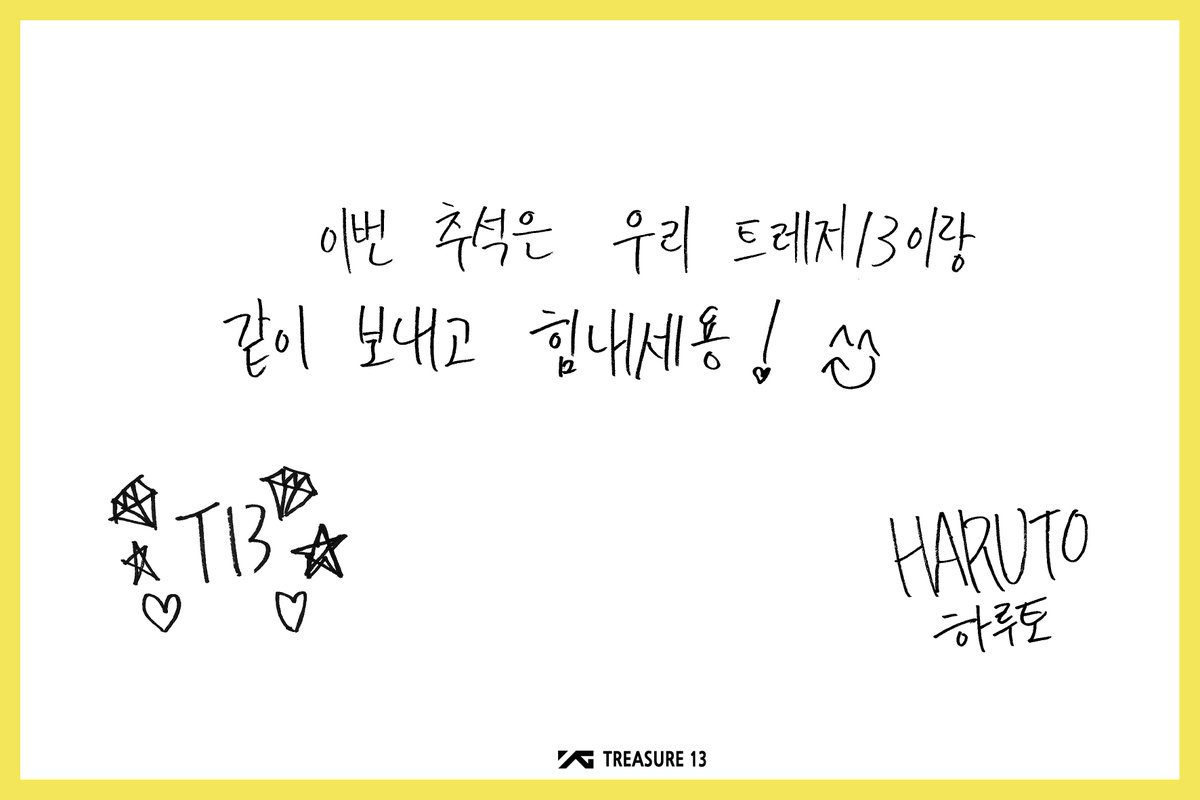 이번 추석은 우리 트레저13이랑
같이 보내고 힘내세용!
T13
HARUTO
하루토
YG TREASURE 13